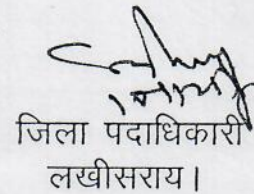 जिला पदाधिकारी
लखीसराय।